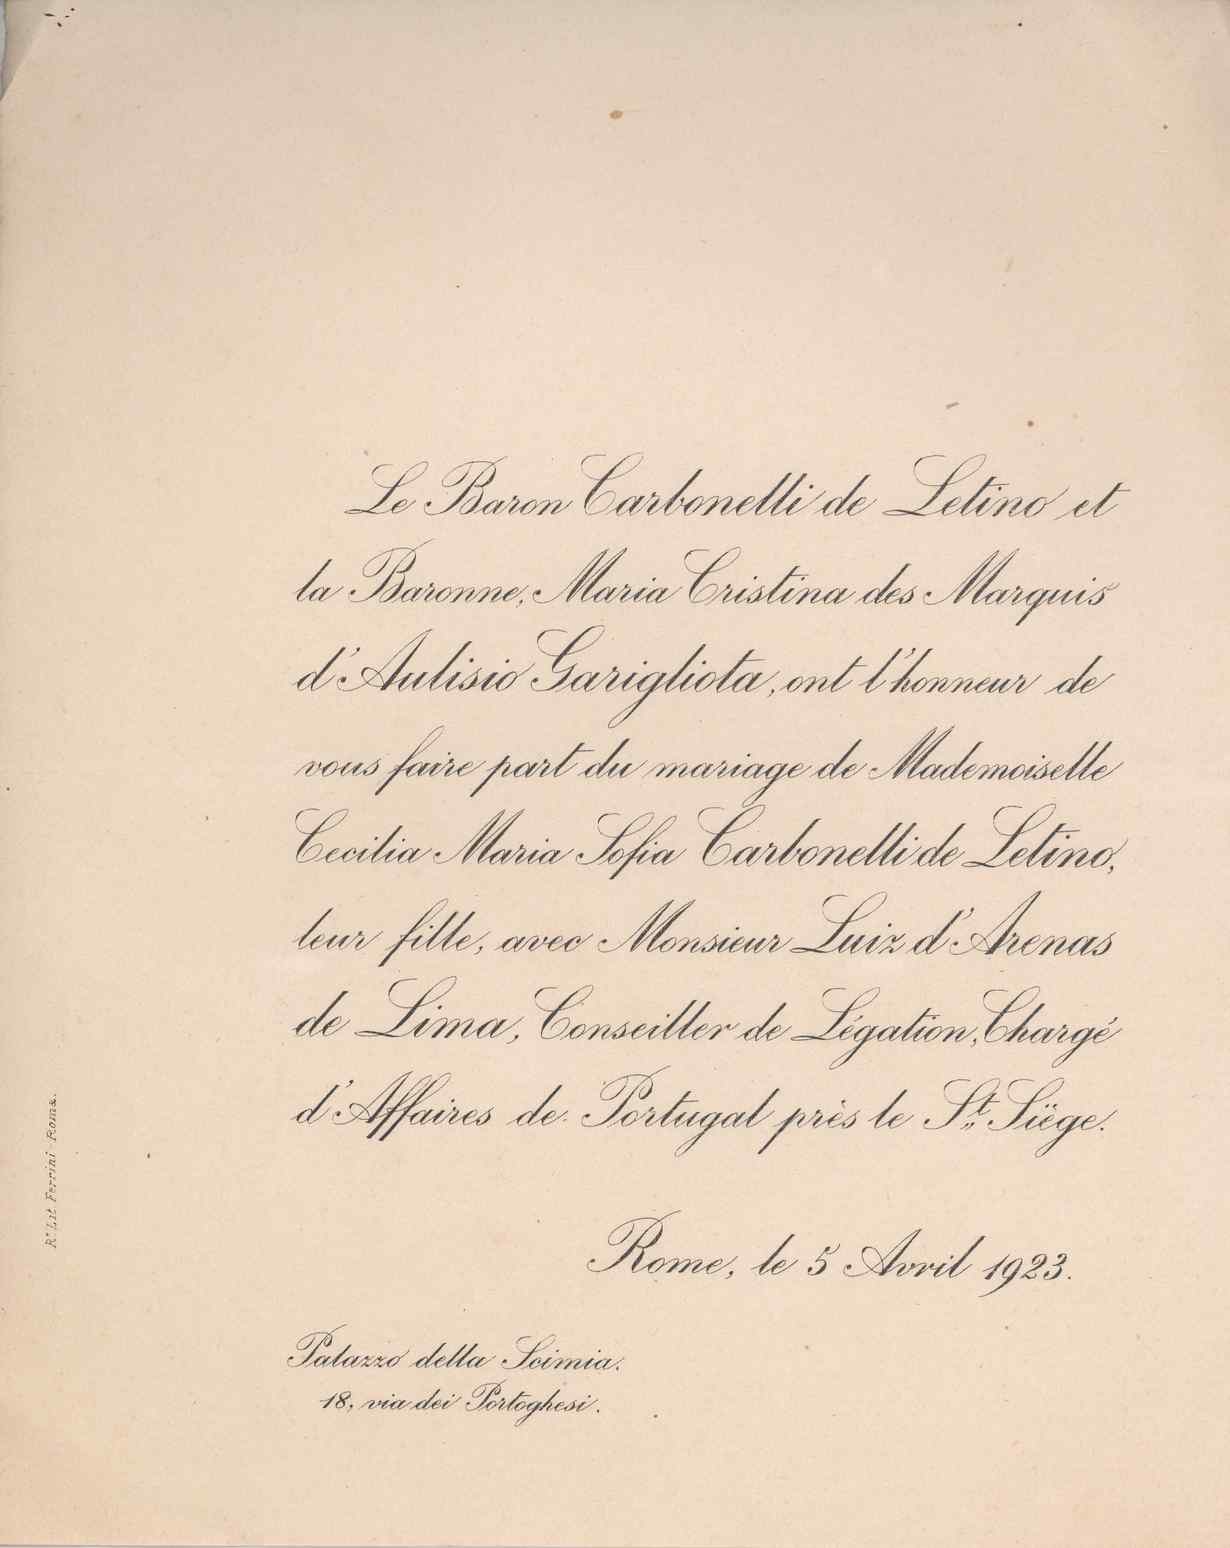 Le Baron Carbonelli de Letino et
la Baronne, Maria Cristina des Marquis
d'Aulisio Garigliota, ont l'honneur de
vous faire part du mariage de Mademoiselle
Cecilia Maria Sofia Carbonelli de Letino,
leur fille, avec Monsieur Luiz d'Arenas
de Lima, Conseiller de Légation, Chargé
d'Affaires de Portugal près le St. Siège.
Rome, le 5 Avril 1923.
Palazzo della Scimia.
18, via dei Portoghesi.
Rta Lit. Ferrini Roma.